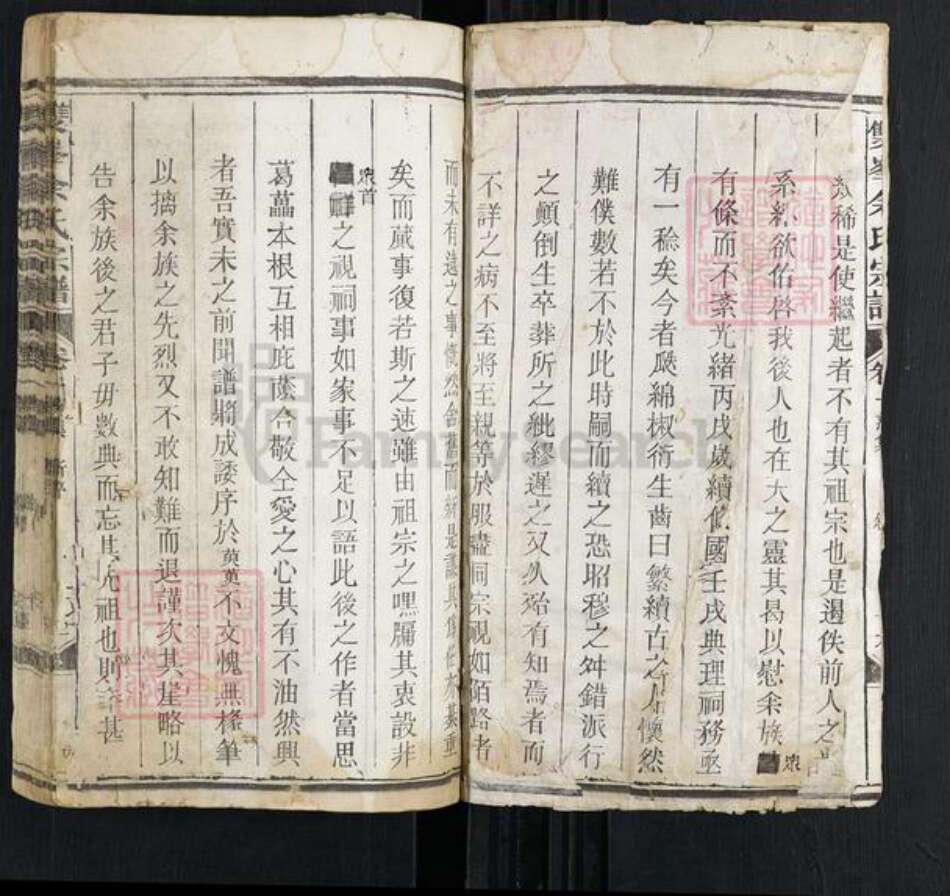 雙峯余氏宗譜
稀是使繼起者不有其祖宗也是遏佚前人之
系緜欲佑啓我後人也在天之靈其曷以慰余族眾
有條而不紊光緒丙戌歲續修國壬戌典理祠務
有一稔矣今者瓞綿椒衍生齒日繁續古之人懷然
難僕數若不於此時嗣而續之恐昭穆之舛錯派行
之顛倒生卒葬所之紕繆遲之又久殆有知焉者而
不詳之病不至將至親等於服盡同宗視如陌路者
而未有遠之事
矣而蕆事復若斯之速雖由祖宗之嘿牖其衷設非
眾首
祥之視祠事如家事不足以語此後之作者當思
葛藟本根互相庇蔭合敬仝愛之心其有不油然興
者吾實未之前聞譜將成諉序於英英不文愧無椽筆
以摛余族之先烈又不敢知難而退謹次其崖略以
告余族後之君子毋數典而忘其先祖也則 甚
雙峯余氏宗譜
FamilySearch